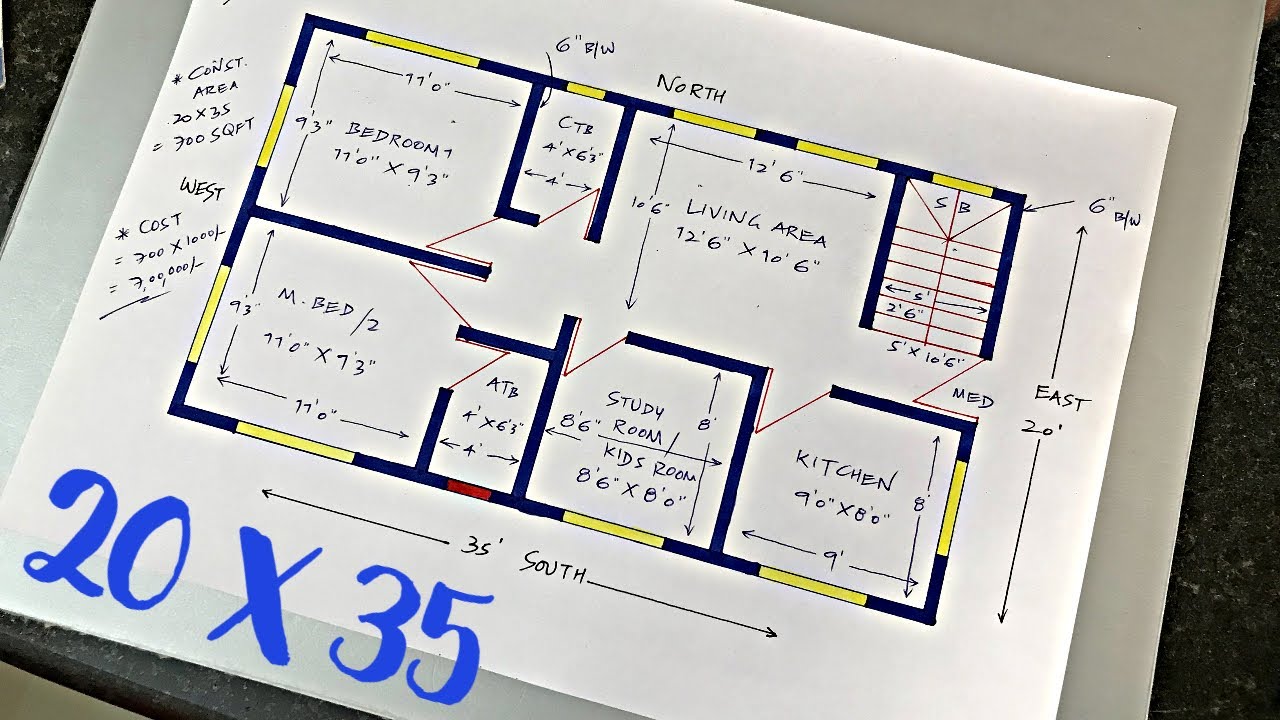 * CONST.
AREA
20 X 35
= 700 SQFT
WEST
* COST
= 700 X 1000/-
= 7,00,000/-
6" B/W
NORTH
11'0"
9'3"
BEDROOM 1
11'0" X 9'3"
CTB
4' X 6'3"
4'
12'6"
10'6"
LIVING AREA
12'6" X 10'6"
S B
6" B/W
5'
2'6"
5' X 10'6"
M. BED/2
9'3"
11'0" X 9'3"
11'0"
ATB
4' X 6'3"
4'
STUDY
ROOM/
8'6"
KIDS ROOM
8'6" X 8'0"
8'
MED
EAST
20'
KITCHEN
9'0" X 8'0"
8'
9'
35' SOUTH
20 X 35